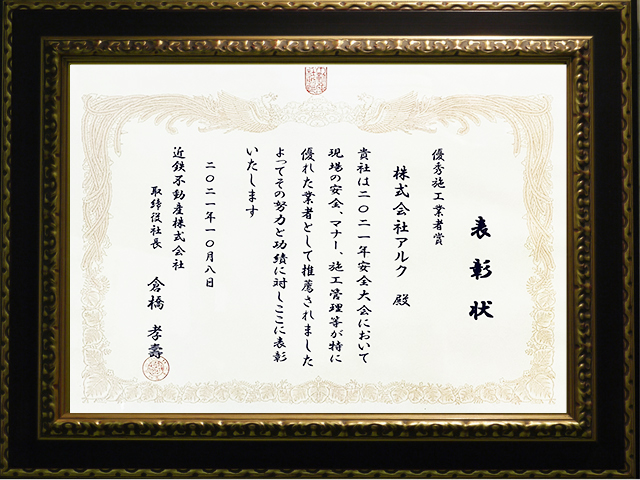 表彰状
優秀施工業者賞
株式会社アルク 殿
貴社は二〇二一年安全大会において
現場の安全、マナー、施工管理等が特に
優れた業者として推薦されました
よってその努力と功績に対しここに表彰
いたします
二〇二一年一〇月八日
近鉄不動産株式会社
取締役社長 倉橋 孝壽